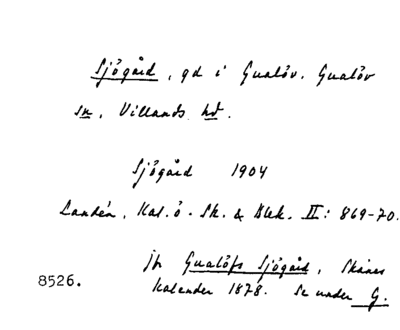 Sjögård, gd i Gualöv. Gualöv
sn, Villands hd.
Sjögård 1904
Landén, Kal. ö. Sk. & Blek. II: 869-70.
jfr Gualöfs Sjögård, Skånes
Kalender 1878. Se under G.
8526.